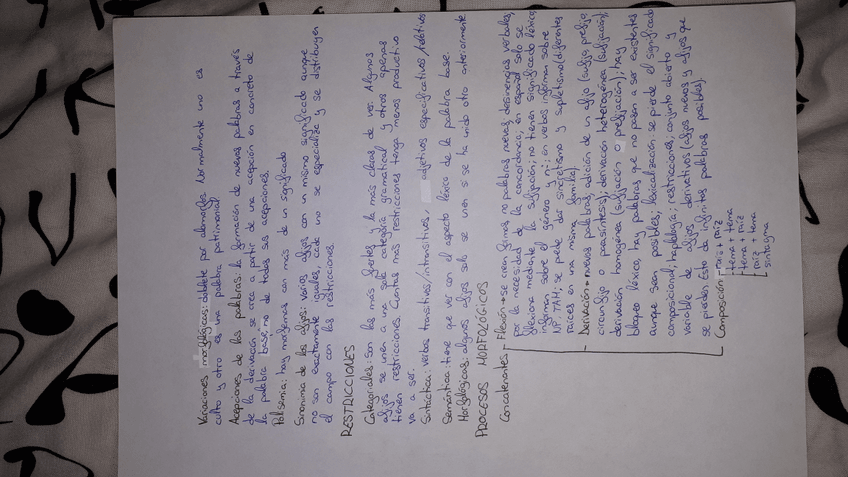 Variaciones morfológicas: doblete por alomorfos. Normalmente uno es
culto y otro es una palabra patrimonial
Acepciones de las palabras: la formación de nuevas palabras a través
de la derivación se crea a partir de una acepción en concreto de
la palabra base, no de todas sus acepciones.
Polisemia: hay morfemas con más de un significado
Sinonimia de los afijos: varios afijos con un mismo significado aunque
no son exactamente iguales, cada uno se especializa y se distribuyen
el campo con las restricciones.
RESTRICCIONES
Categoriales: son las más fuertes y la más claras de ver. Algunos
afijos se unen a una sola categoría gramatical y otros apenas
tienen restricciones. Cuantas más restricciones tenga menos productivo
va a ser.
Sintáctica: verbos transitivos/intransitivos/ adjetivos especificativos/
Semántica: tiene que ver con el aspecto léxico de la palabra base.
Morfológicas: algunos afijos solo se unen si se ha unido otro anteriormente
PROCESOS MORFOLÓGICOS
Concatenantes - Flexión → se crean formas no palabras nuevas, desinencias verbales,
por la necesidad de la concordancia, en español solo se
flexiona mediante la sufijación, no tienen significado léxico,
informan sobre el género y nº; en verbos informan sobre
NP, TAM; se puede dar sincretismo y supletismo (diferentes
raíces en una misma familia).
- Derivación → nuevas palabras, adición de un afijo (sufijo, prefijo,
circunfijo o parasíntesis), derivación heterogénea (sufijación),
derivación homogénea (sufijación o prefijación); hay
bloqueo léxico, hay palabras que no pasan a ser existentes
aunque sean posibles, lexicalización, se pierde el significado
composicional, haplología, restricciones, conjunto abierto y
variable de afijos derivativos (afijos nuevos y afijos que
se pierden. Esto da infinitas palabras posibles).
Composición raíz + raíz
tema + tema
tema + raíz
raíz + tema
sintagma